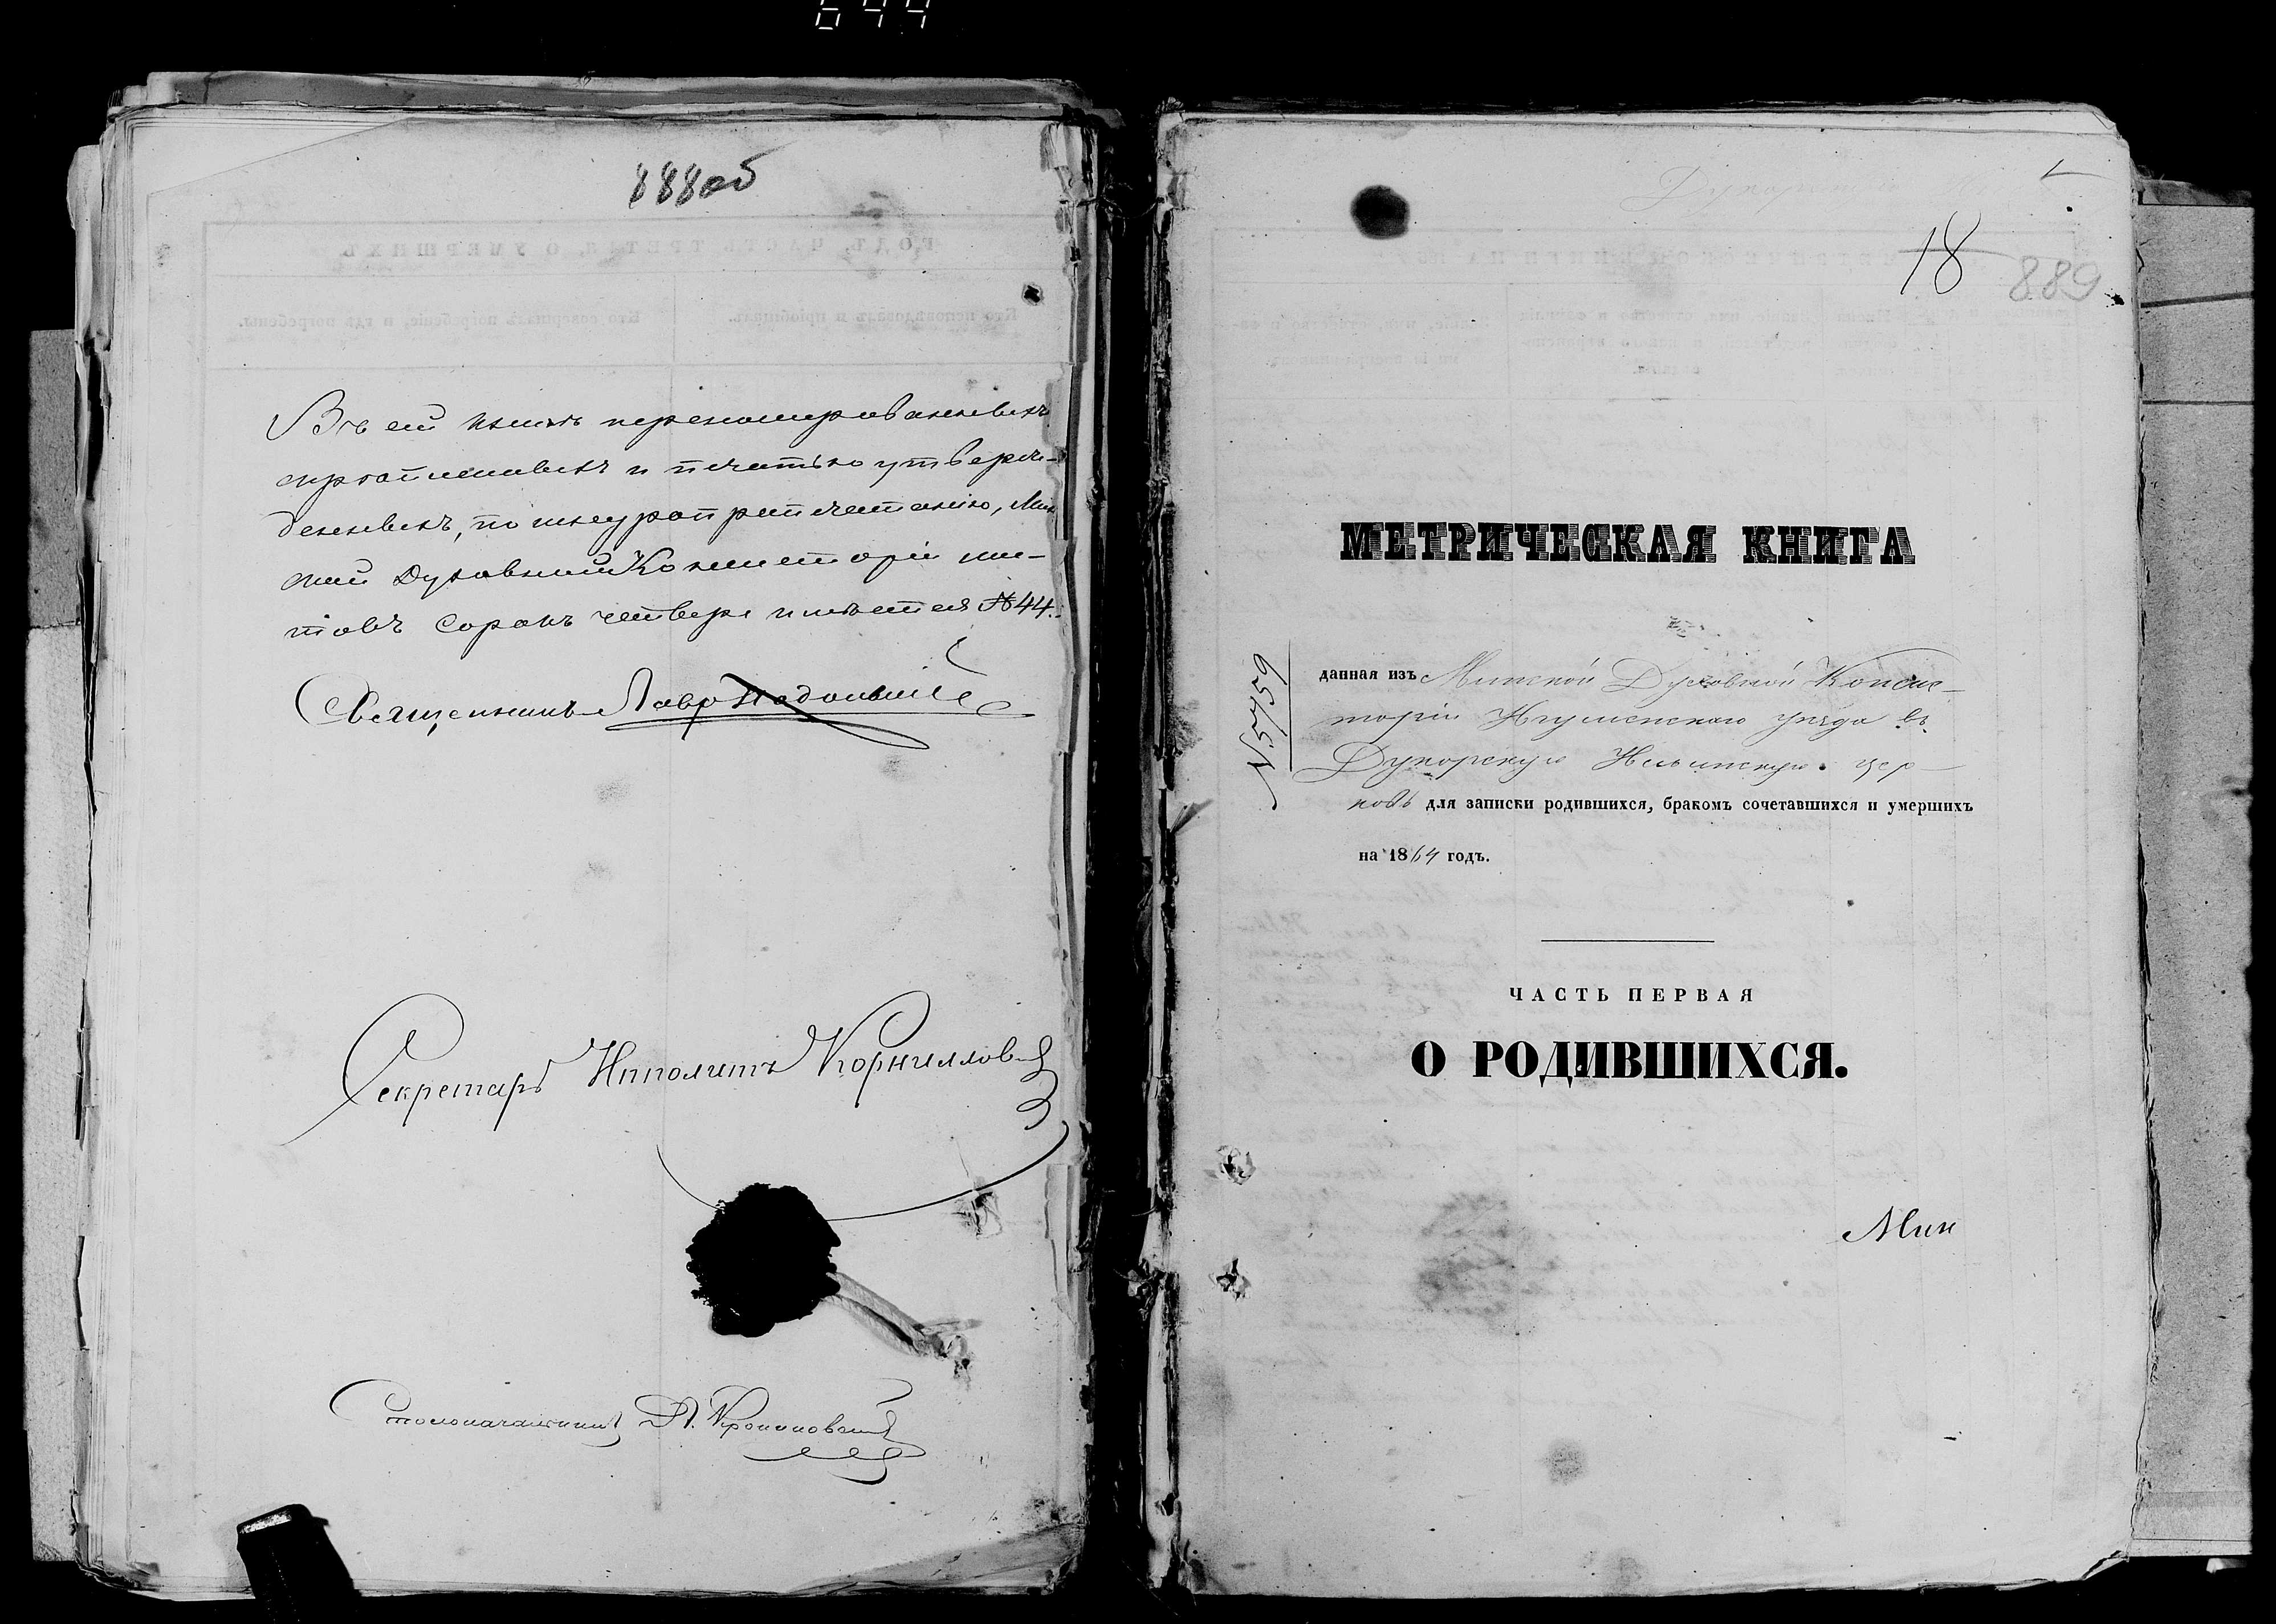 888об
Въ сей книгѣ переномерованныхъ
скрѣпленныхъ и печатью утверж-
денныхъ, по шнуроприпечатанію, Мин
ской Духовной Консисторіи лис-
товъ сорокъ четыре имѣется №44.
Священникъ Лавр
Секретарь Ипполитъ Корнилловъ
Столоначальникъ
18
889
МЕТРИЧЕСКАЯ КНИГА
№5759
данная изъ Минской Духовной Консис-
торіи Игуменскаго уѣзда въ
Дукорскую Ильинскую цер-
ковь для записки родившихся, бракомъ сочетавшихся и умершихъ
на 1864 годъ.
ЧАСТЬ ПЕРВАЯ
О РОДИВШИХСЯ.
Мин